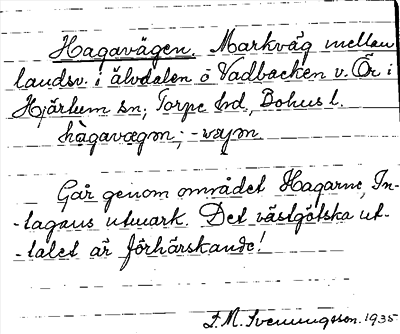 Hagavägen. Markväg mellan
landsv. i älvdalen o Vadbacken v. Ör i
Hjärtum sn, Torpe hd, Bohus l.
hagavægən; -væjən.
Går genom området Hagarne, In-
-tagans utmark. Det västgötska ut-
-talet är förhärskande!
F. M. Svenningsson. 1935